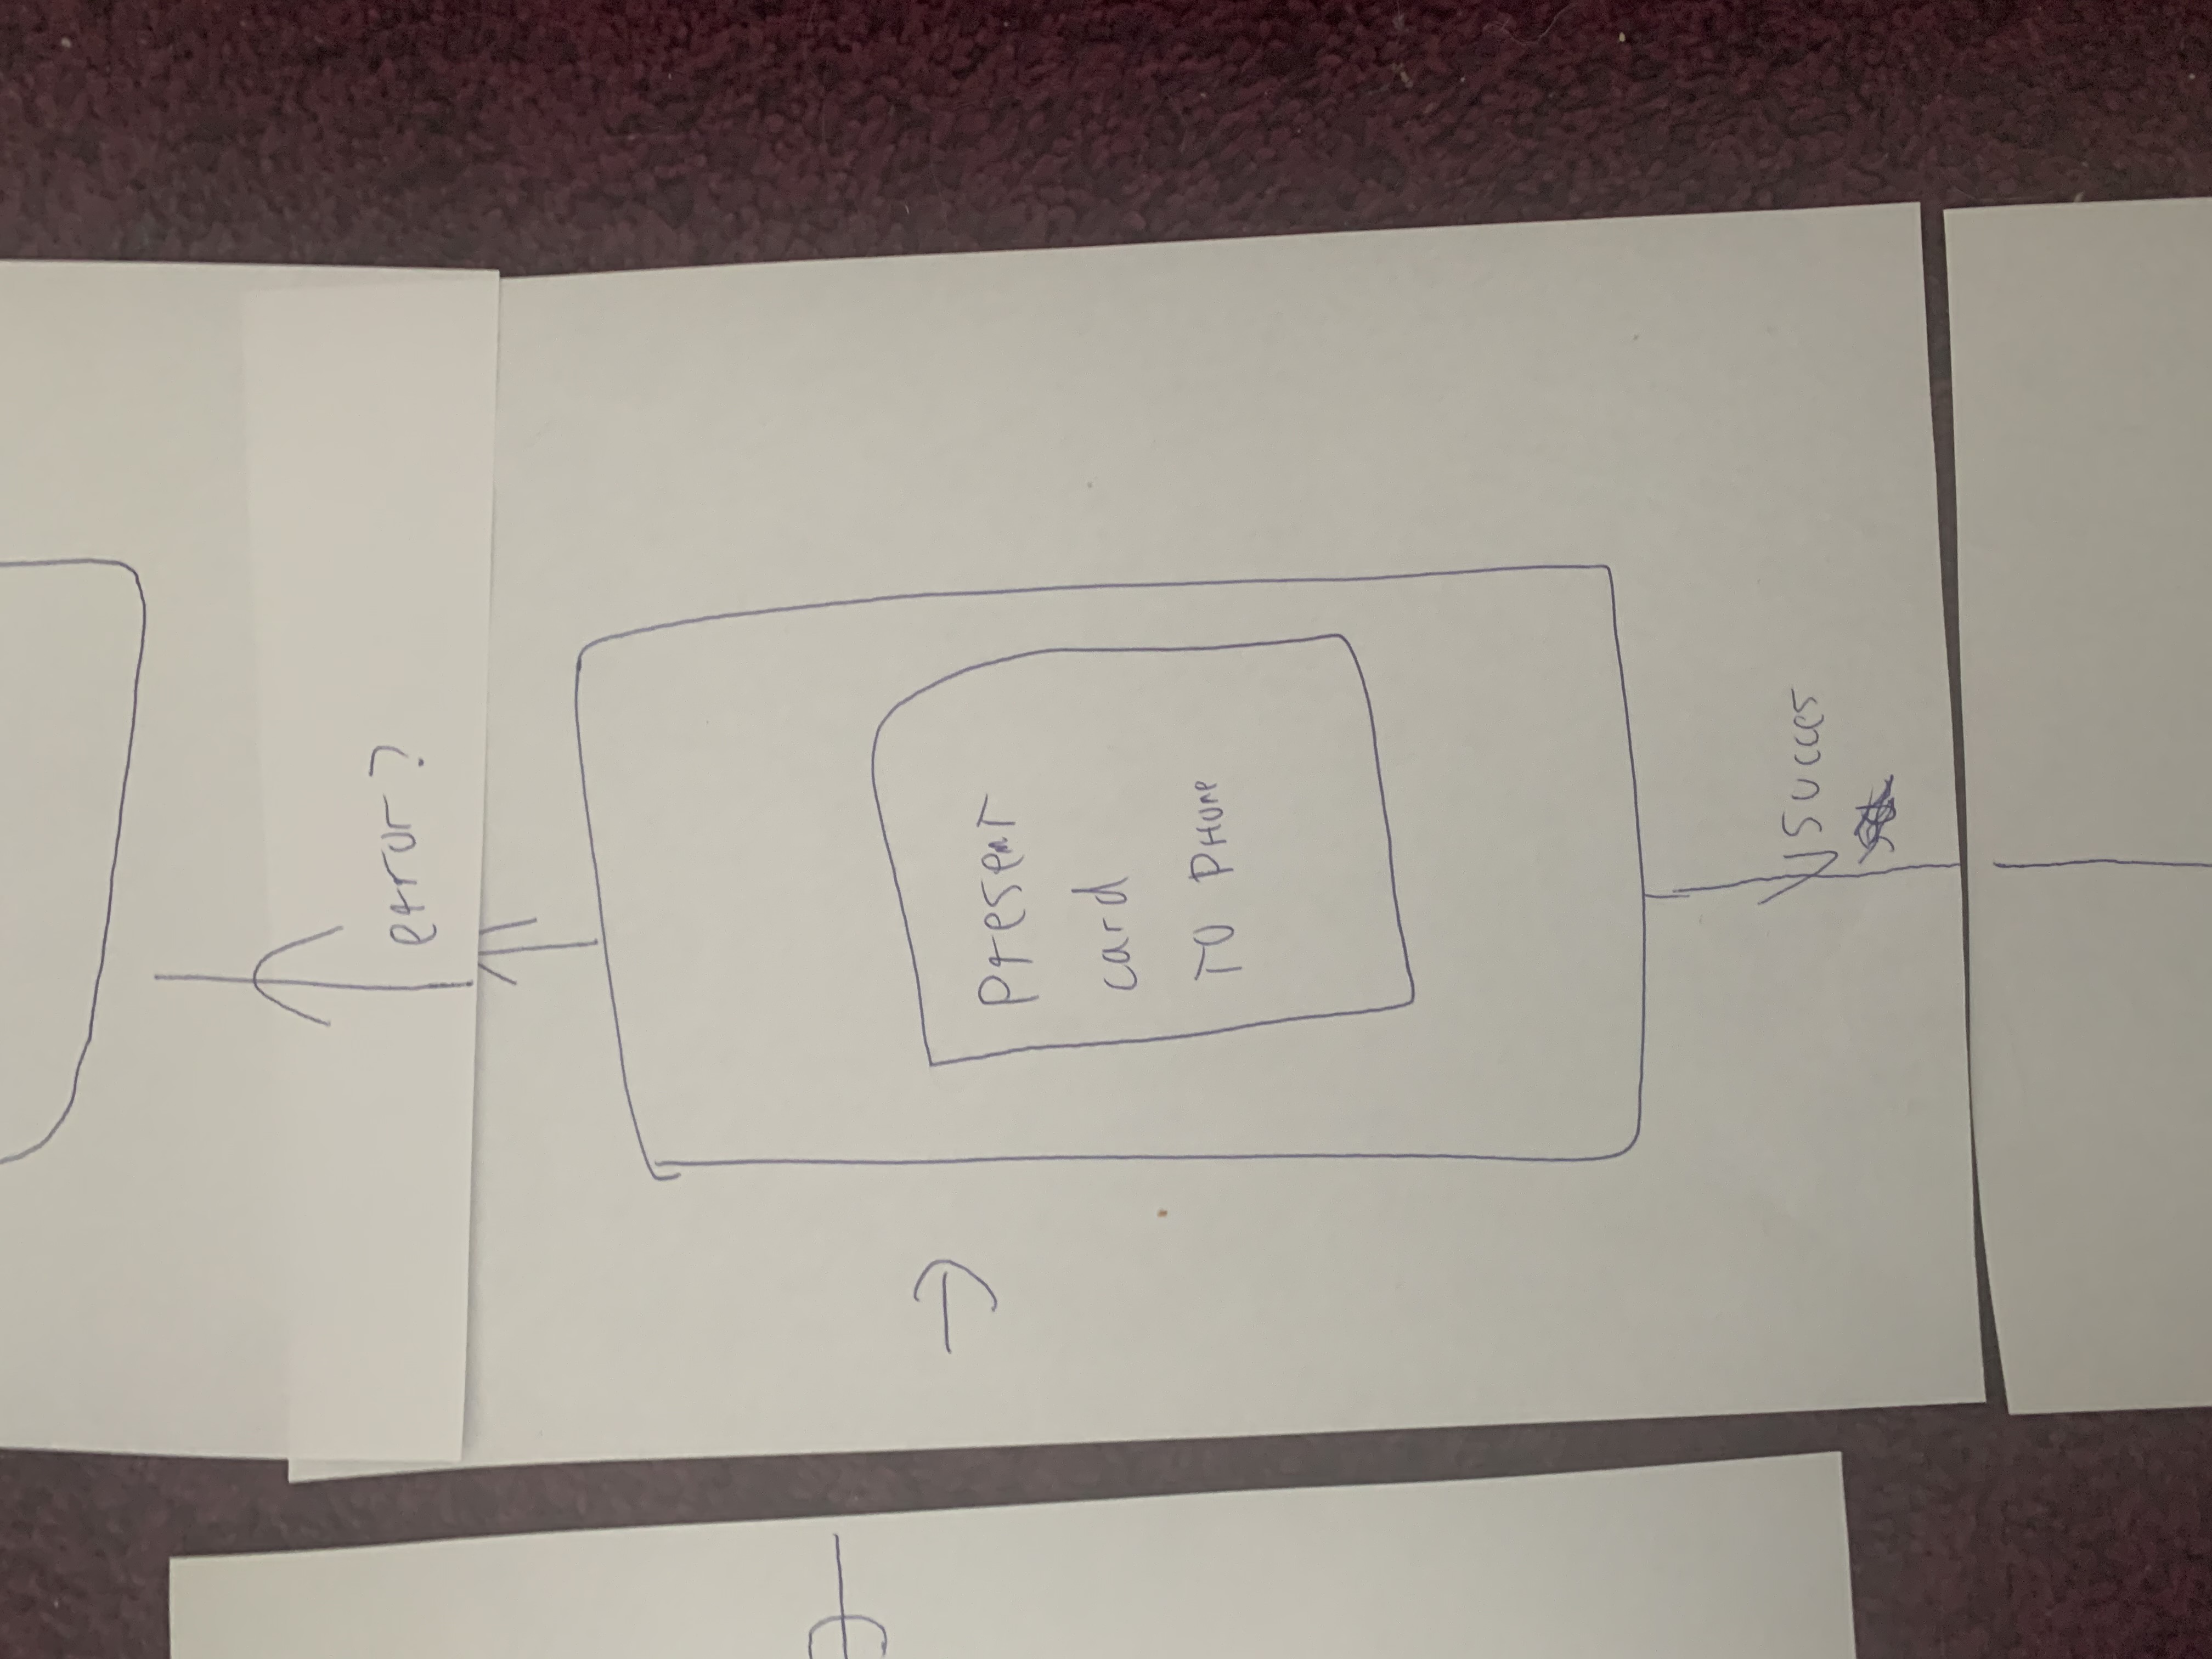 error?
Present
card
TO PHONE
SUCCES